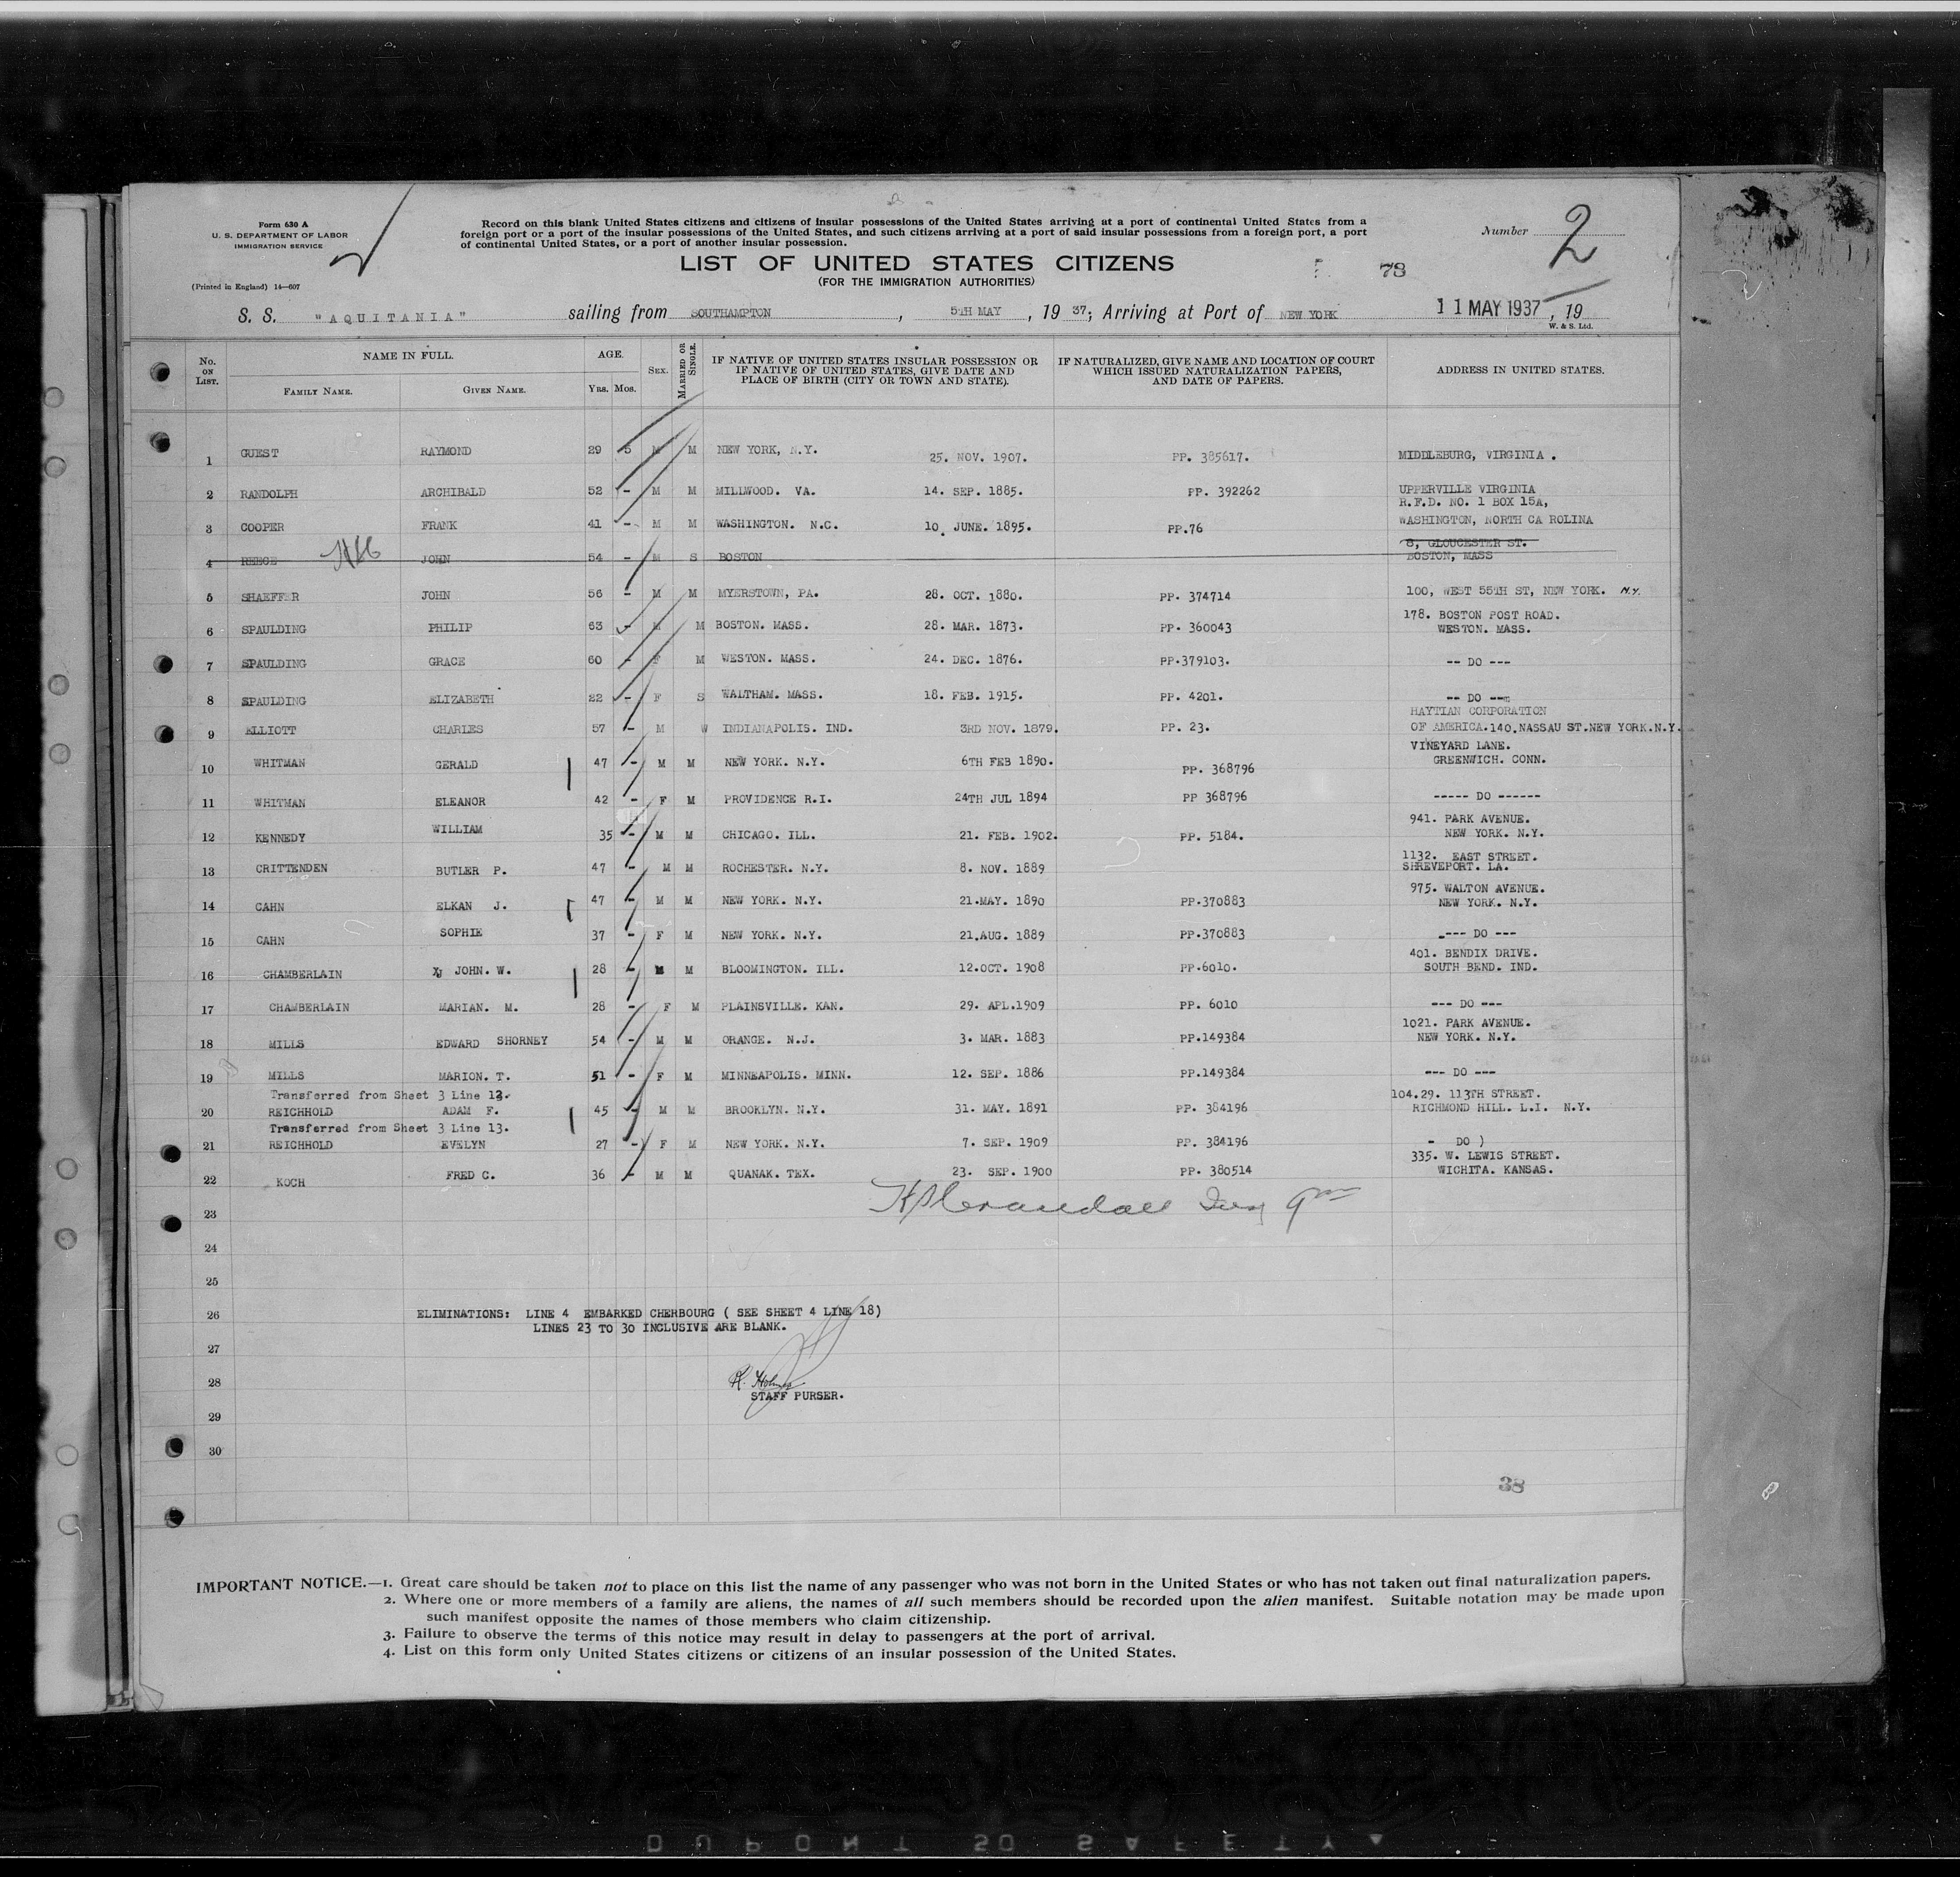 Form 630 A
U. S. DEPARTMENT OF LABOR
IMMIGRATION SERVICE
(Printed in England) 14—607
Record on this blank United States citizens and citizens of insular possessions of the United States arriving at a port of continental United States from a
foreign port or a port of the insular possessions of the United States, and such citizens arriving at a port of said insular possessions from a foreign port, a port
of continental United States, or a port of another insular possession.
Number 2
LIST OF UNITED STATES CITIZENS
(FOR THE IMMIGRATION AUTHORITIES)
78
S. S. "AQUITANIA" sailing from SOUTHAMPTON, 5TH MAY, 19 37; Arriving at Port of NEW YORK 11 MAY 1937, 19
W. & S. Ltd.
No. ON LIST. NAME IN FULL. FAMILY NAME. GIVEN NAME. AGE. Yrs. Mos. SEX. MARRIED OR SINGLE. IF NATIVE OF UNITED STATES INSULAR POSSESSION OR IF NATIVE OF UNITED STATES, GIVE DATE AND PLACE OF BIRTH (CITY OR TOWN AND STATE). IF NATURALIZED, GIVE NAME AND LOCATION OF COURT WHICH ISSUED NATURALIZATION PAPERS, AND DATE OF PAPERS. ADDRESS IN UNITED STATES.
1 GUEST RAYMOND 29 5 M M NEW YORK, N.Y. 25. NOV. 1907. PP. 385617. MIDDLEBURG, VIRGINIA .
2 RANDOLPH ARCHIBALD 52 - M M MILLWOOD. VA. 14. SEP. 1885. PP. 392262 UPPERVILLE VIRGINIA
R.F.D. NO. 1 BOX 15A,
3 COOPER FRANK 41 - M M WASHINGTON. N.C. 10. JUNE. 1895. PP.76 WASHINGTON, NORTH CA ROLINA
8, GLOUCESTER ST.
4 REECE JOHN 54 - M S BOSTON BOSTON, MASS
5 SHAEFFER JOHN 56 - M M MYERSTOWN, PA. 28. OCT. 1880. PP. 374714 100, WEST 55TH ST, NEW YORK. N.Y.
178. BOSTON POST ROAD.
6 SPAULDING PHILIP 63 - M M BOSTON. MASS. 28. MAR. 1873. PP. 360043 WESTON. MASS.
7 SPAULDING GRACE 60 - F M WESTON. MASS. 24. DEC. 1876. PP.379103. -- DO ---
8 SPAULDING ELIZABETH 22 - F S WALTHAM. MASS. 18. FEB. 1915. PP. 4201. -- DO ---
HAYTIAN CORPORATION
9 ELLIOTT CHARLES 57 - M W INDIANAPOLIS. IND. 3RD NOV. 1879. PP. 23. OF AMERICA.140.NASSAU ST.NEW YORK.N.Y.
VINEYARD LANE.
10 WHITMAN GERALD 47 - M M NEW YORK. N.Y. 6TH FEB 1890. PP. 368796 GREENWICH. CONN.
11 WHITMAN ELEANOR 42 - F M PROVIDENCE R.I. 24TH JUL 1894 PP 368796 ----- DO ------
941. PARK AVENUE.
12 KENNEDY WILLIAM 35 - M M CHICAGO. ILL. 21. FEB. 1902. PP. 5184. NEW YORK. N.Y.
1132. EAST STREET.
13 CRITTENDEN BUTLER P. 47 - M M ROCHESTER. N.Y. 8. NOV. 1889 SHREVEPORT. LA.
975. WALTON AVENUE.
14 CAHN ELKAN J. 47 - M M NEW YORK. N.Y. 21.MAY. 1890 PP.370883 NEW YORK. N.Y.
15 CAHN SOPHIE 37 - F M NEW YORK. N.Y. 21.AUG. 1889 PP.370883 ---- DO ---
401. BENDIX DRIVE.
16 CHAMBERLAIN JOHN. W. 28 - M M BLOOMINGTON. ILL. 12.OCT. 1908 PP.6010. SOUTH BEND. IND.
17 CHAMBERLAIN MARIAN. M. 28 - F M PLAINSVILLE. KAN. 29. APL.1909 PP. 6010 --- DO ---
1021. PARK AVENUE.
18 MILLS EDWARD SHORNEY 54 - M M ORANGE. N.J. 3. MAR. 1883 PP.149384 NEW YORK. N.Y.
19 MILLS MARION. T. 51 - F M MINNEAPOLIS. MINN. 12. SEP. 1886 PP.149384 --- DO ---
Transferred from Sheet 3 Line 12. 104.29. 113TH STREET.
20 REICHHOLD ADAM F. 45 - M M BROOKLYN. N.Y. 31. MAY. 1891 PP. 384196 RICHMOND HILL. L.I. N.Y.
Transferred from Sheet 3 Line 13.
21 REICHHOLD EVELYN 27 - F M NEW YORK. N.Y. 7. SEP. 1909 PP. 384196 - DO )
335. W. LEWIS STREET.
22 KOCH FRED C. 36 - M M QUANAK. TEX. 23. SEP. 1900 PP. 380514 WICHITA. KANSAS.
23
24
25
26 ELIMINATIONS: LINE 4 EMBARKED CHERBOURG ( SEE SHEET 4 LINE 18)
LINES 23 TO 30 INCLUSIVE ARE BLANK.
27
28 R. Holmes
STAFF PURSER.
29
30
38
IMPORTANT NOTICE.—1. Great care should be taken not to place on this list the name of any passenger who was not born in the United States or who has not taken out final naturalization papers.
2. Where one or more members of a family are aliens, the names of all such members should be recorded upon the alien manifest. Suitable notation may be made upon
such manifest opposite the names of those members who claim citizenship.
3. Failure to observe the terms of this notice may result in delay to passengers at the port of arrival.
4. List on this form only United States citizens or citizens of an insular possession of the United States.
DUPONT 50 SAFETY